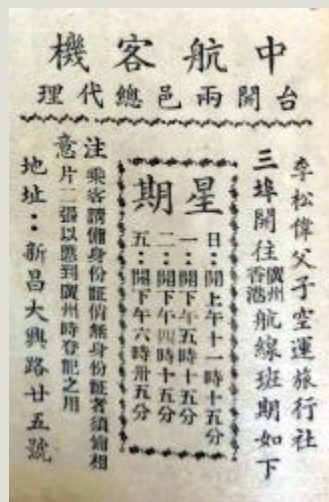 中航客機
台開兩邑總代理
李松偉父子空運旅行社
三埠開往廣州香港航線班期如下
星期
日：開上午十一時十五分
一：開下午五時十五分
二：開下午四時十五分
五：開下午六時卅五分
注意
乘客請備身份証倘無身份証者須備相
片二張以應到廣州時登記之用
地址：新昌大興路廿五號